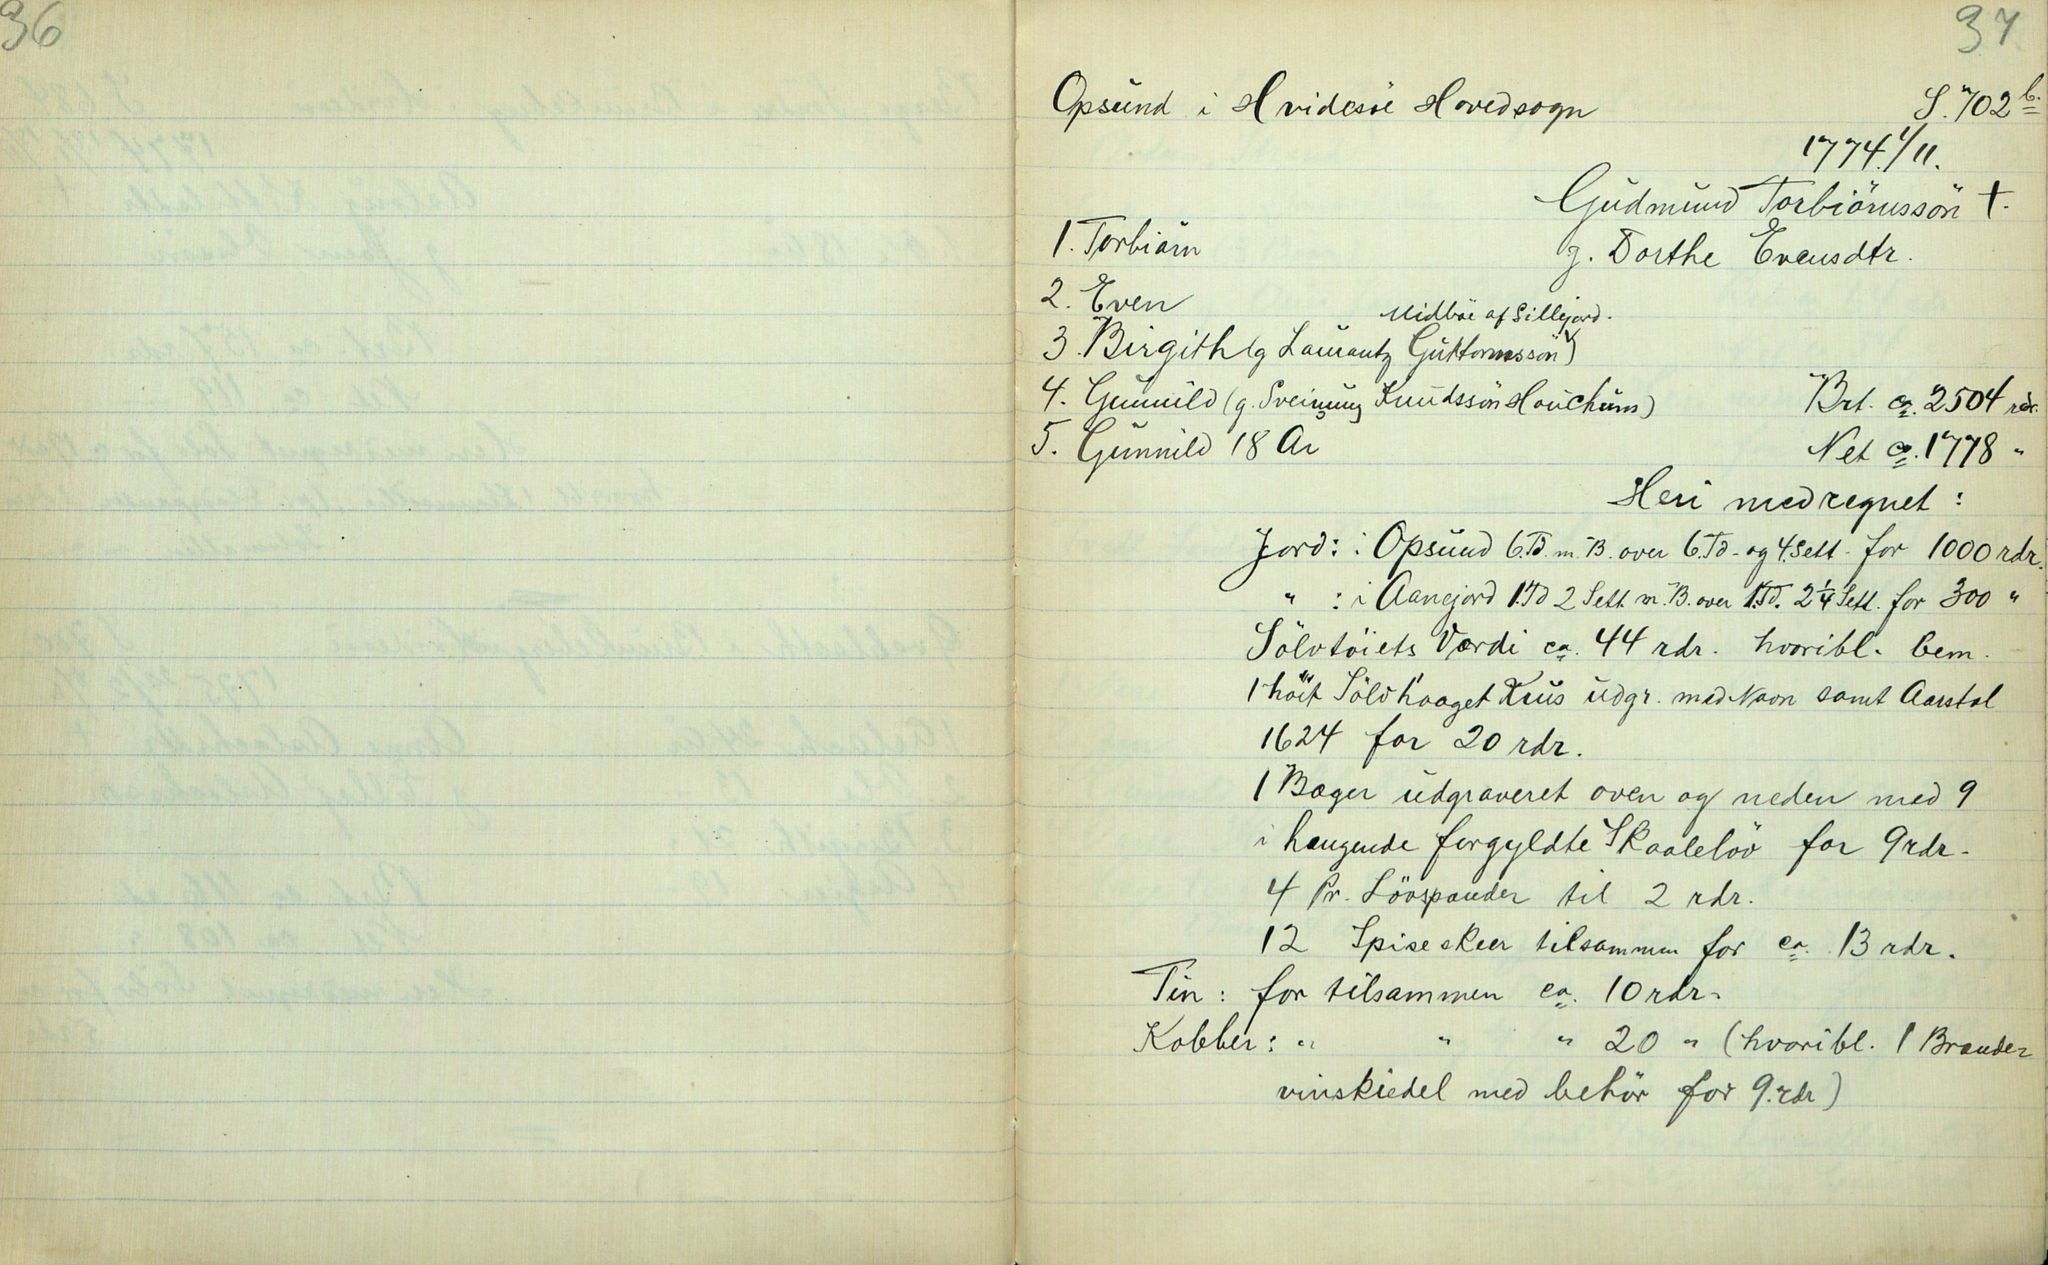 36
37
Opsund i Hvidesöe Hovedsogn S. 702 b.
1774. 1/11.
Gudmund Torbiörnssön †.
1. Torbiörn g. Dorthe Evensdtr.
2. Even
Midböe af Sillejord.
3. Birgith (g Laurantz Guttormssön)
4. Gunnild (g. Sveinung Knudssön Houchum) Brt. ca. 2504 rdr.
5. Gunnild 18 Ar Net ca. 1778 "
Heri medregnet :
Jord: i Opsund 6.Td. m. B. over 6.Td. og 4.Sett. for 1000 rdr.
" : i Aanejord 1.Td 2 Sett. m. B. over 1.Td. 2 1/4 Sett. for 300 "
Sölvtöiets Værdi ca. 44 rdr. hvoribl. bem.
1 höit Sölvkaaget Krus udgr. med Navn samt Aarstal
1624 for 20 rdr.
1 Bæger udgraveret oven og neden med 9
i hængende forgyldte Skaaleløv for 9 rdr.
4 Pr. Lövspænder til 2 rdr.
12 Spiseskeer tilsammen for ca. 13 rdr.
Tin : for tilsammen ca. 10 rdr.
Kobber : " " " 20 " (hvoribl. 1 Brænde-
vinskiedel med behör for 9.rdr)